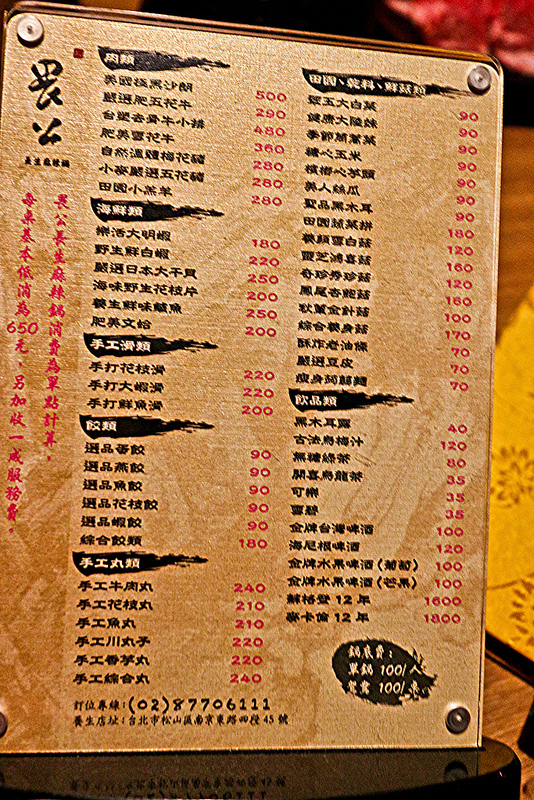 畏公
長生麻辣鍋
畏公長生麻辣鍋消費為單點計算，
每桌基本低消為650元，另加收一成服務費。
肉類
美國極黑沙朗 500
嚴選肥五花牛 290
台塑去骨牛小排 480
肥美雪花牛 360
自然溫體梅花豬 280
小麥嚴選五花豬 280
田園小羔羊 280
海鮮類
樂活大明蝦 180
野生鮮白蝦 220
嚴選日本大干貝 250
海味野生花枝片 200
養生鮮味鯛魚 250
肥美文蛤 200
手工滑類
手打花枝滑 220
手打大蝦滑 220
手打鮮魚滑 200
餃類
選品蛋餃 90
選品燕餃 90
選品魚餃 90
選品花枝餃 90
選品蝦餃 90
綜合餃類 180
手工丸類
手工牛肉丸 240
手工花枝丸 210
手工魚丸 210
手工川丸子 220
手工香芋丸 220
手工綜合丸 240
訂位專線：(02)87706111
養生店址：台北市松山區南京東路四段45號
田園、乾料、鮮菇類
翠玉大白菜 90
健康大陸妹 90
季節茼蒿菜 90
糖心玉米 90
檳榔心芋頭 90
美人絲瓜 90
聖品黑木耳 90
田園蔬菜拼 180
養顏雪白菇 120
靈芝鴻喜菇 160
奇珍秀珍菇 120
鳳尾杏鮑菇 160
秋薰金針菇 100
綜合養身菇 170
酥炸老油條 70
嚴選豆皮 70
瘦身蒟蒻麵 70
飲品類
黑木耳露 40
古法烏梅汁 120
無糖綠茶 80
開喜烏龍茶 35
可樂 35
雪碧 35
金牌台灣啤酒 100
海尼根啤酒 120
金牌水果啤酒(葡萄) 100
金牌水果啤酒(芒果) 100
蘇格登 12 年 1600
麥卡倫 12 年 1800
鍋底費：
單鍋 100/人
鴛鴦 100/